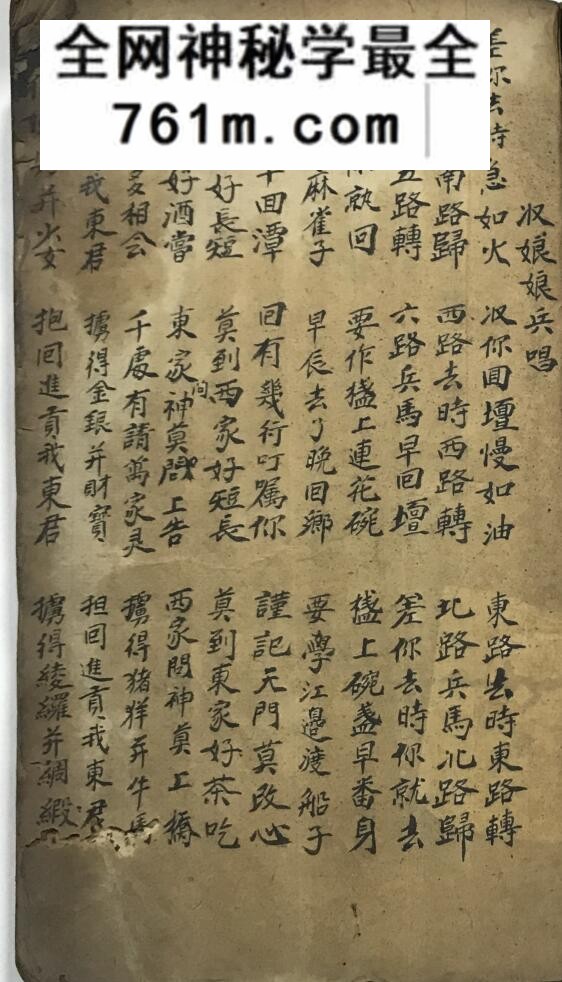 全网神秘学最全
761m.com
収娘娘兵唱
差你去時急如火 収你回壇慢如油 東路去時東路轉
南路歸 西路去時西路轉 北路兵馬北路歸
五路轉 六路兵馬早回壇 差你去時你就去
你就回 要作上連花碗 上碗盞早番身
麻雀子 早辰去了晚回鄉 要學江邊渡船子
回潭 回有幾行叮囑你 謹記天門莫改心
好長短 莫到西家好短長 莫到東家好茶吃
好酒嘗 東家神莫問上告 西家問神莫上橋
多相公 千處有請萬家灵 擄得猪羊并牛馬
我東君 擄得金銀并財寶 担回進貢我東君
并少女 抱回進貢我東君 擄得綾羅并綢緞